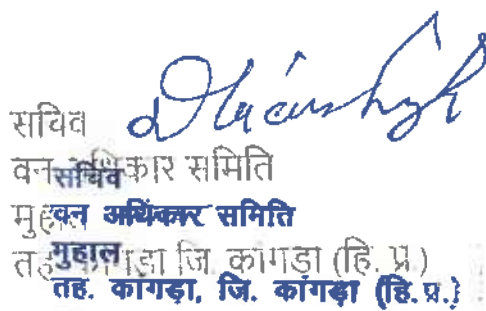 सचिव
वन अधिकार समिति
मुहाल
तह. कांगड़ा जि. कांगड़ा (हि. प्र.)
सचिव
वन अधिकार समिति
मुहाल
तह. कांगड़ा, जि. कांगड़ा (हि.प्र.)